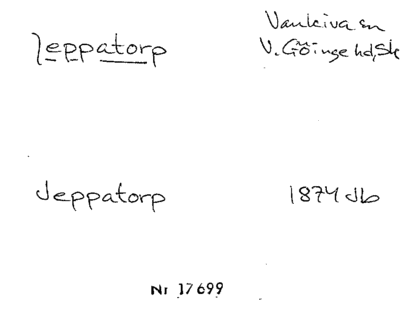 Jeppatorp
Vankiva sn
V. Göinge hd, Sk
Jeppatorp
1874 Jb
Nr 17699